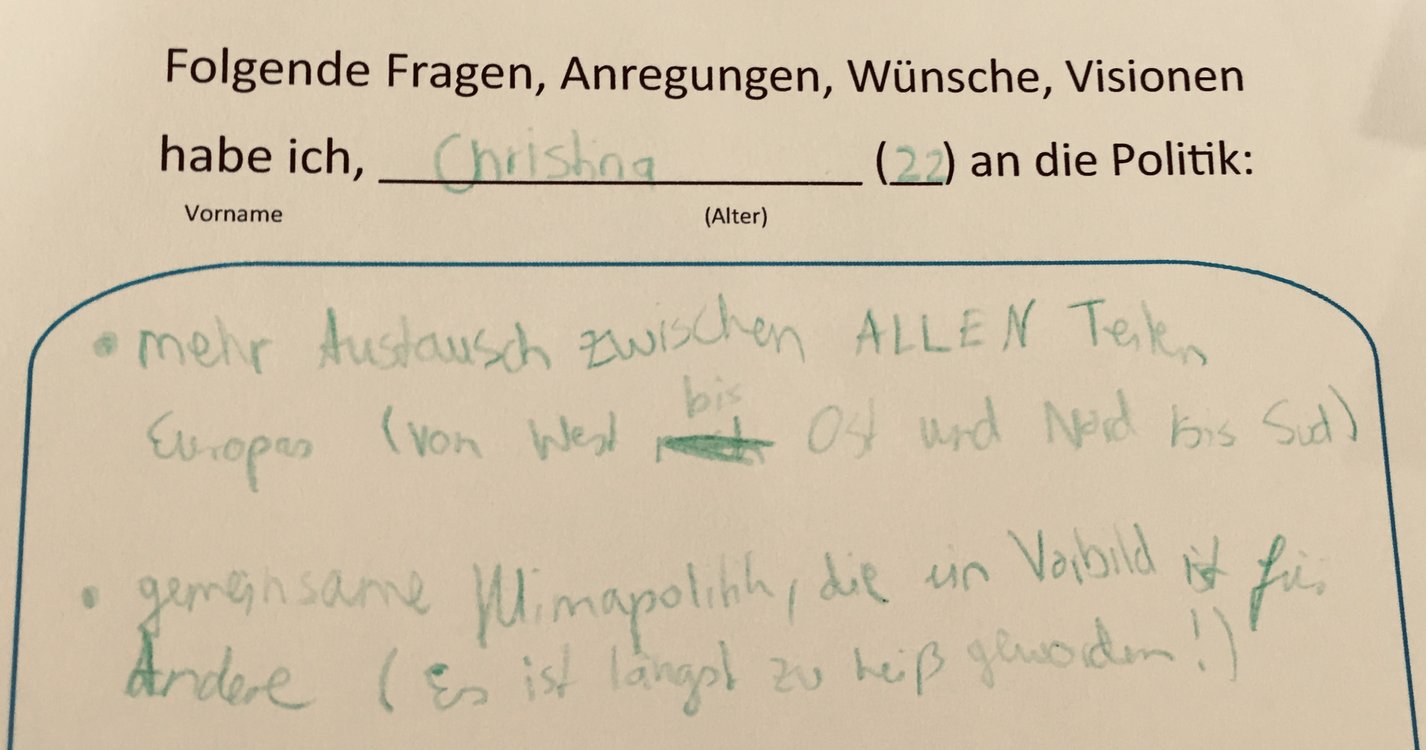 Folgende Fragen, Anregungen, Wünsche, Visionen
habe ich, Christina (22) an die Politik:
Vorname (Alter)
• mehr Austausch zwischen ALLEN Teilen
Europas (von West bis Ost und Nord bis Süd)
• gemeinsame Klimapolitik, die ein Vorbild ist für
Andere (Es ist längst zu heiß geworden!)